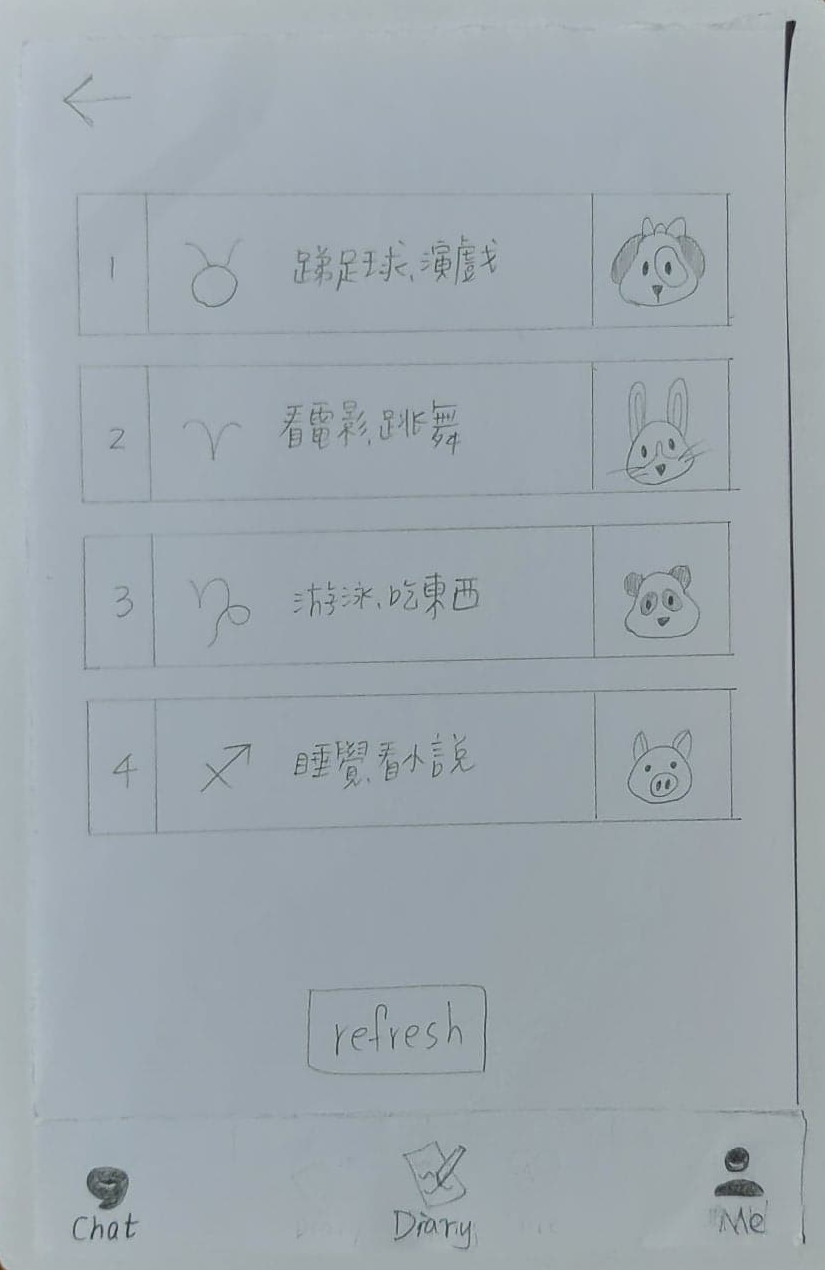 1 ♉ 踢足球、演戲
2 ♈ 看電影、跳舞
3 ♑ 游泳、吃東西
4 ♐ 睡覺、看小說
refresh
Chat Diary Me